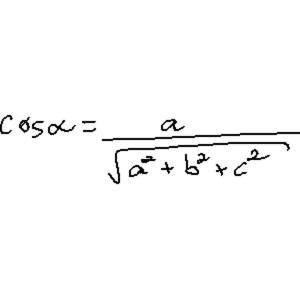 cosα = a / √(a² + b² + c²)